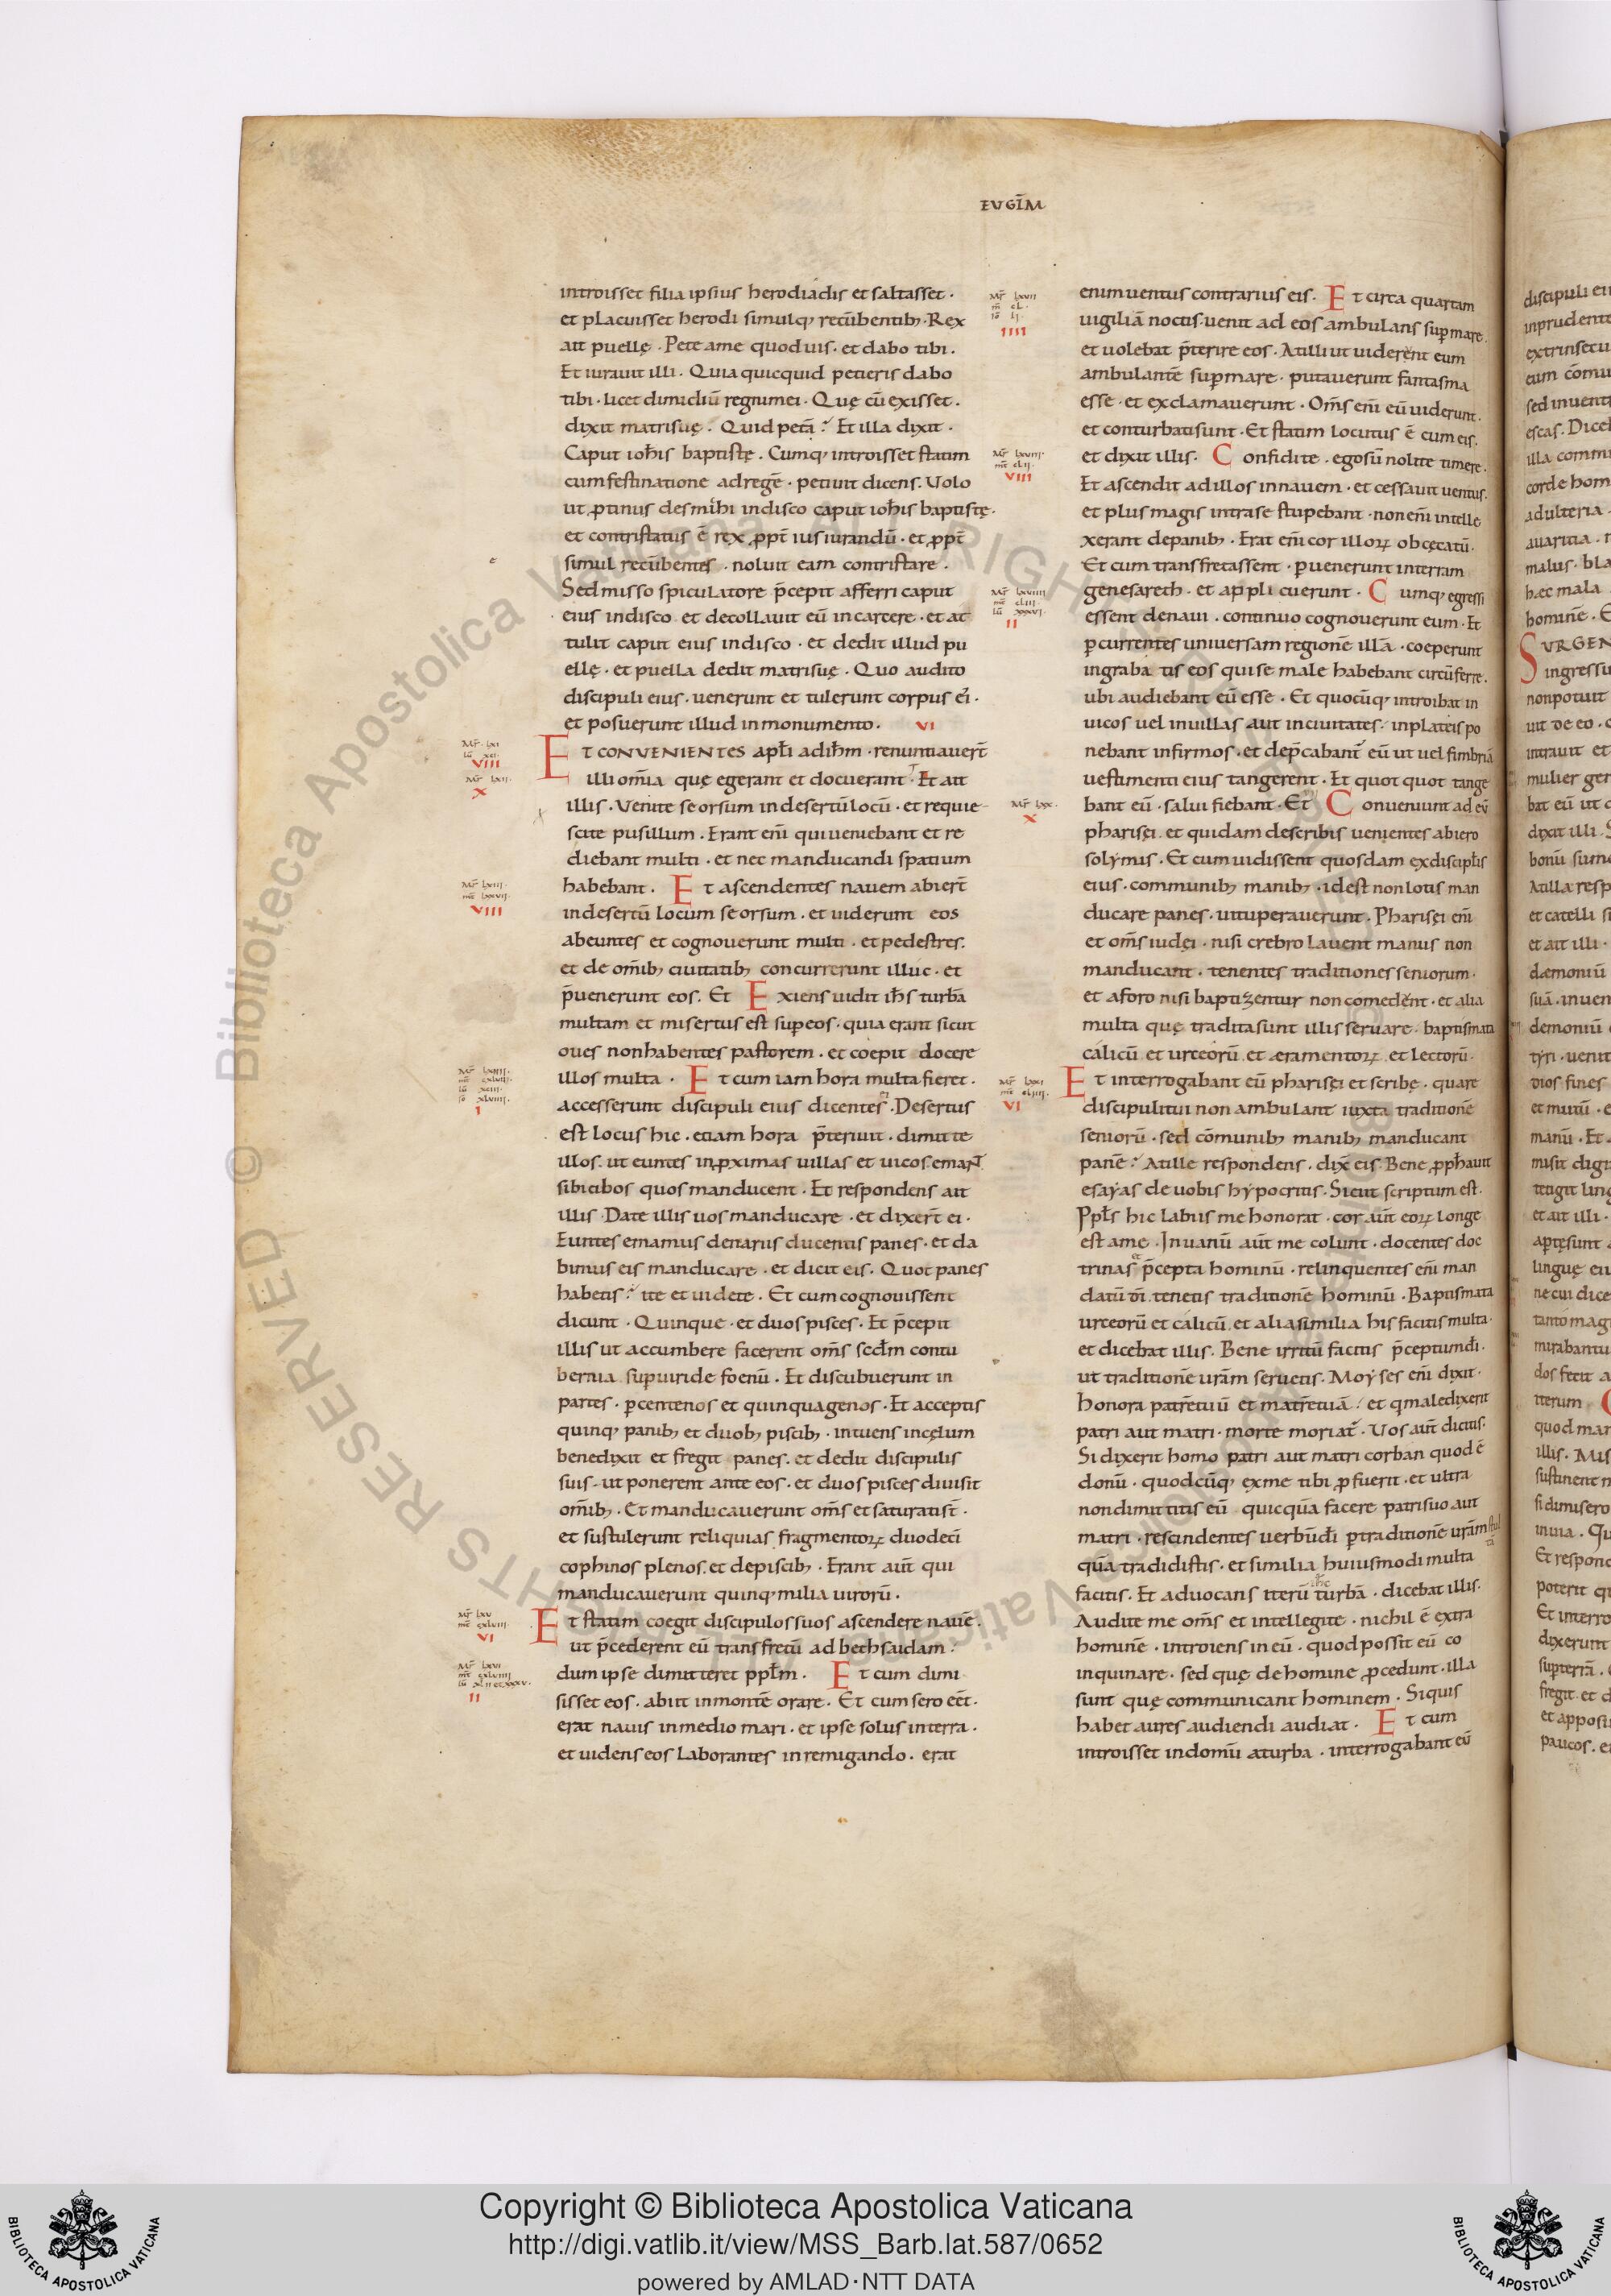 EVGĪM
introisset filia ipsius herodiadis et saltasset ·
et placuisset herodi simulq; recūbentib; · Rex
ait puellę · Pete ame quod uis · et dabo tibi ·
Et iurauit illi · Quia quicquid petieris dabo
tibi · licet dimidiū regni mei · Quę cū exisset ·
dixit matri suę · Quid petā? Et illa dixit ·
Caput ioh̄is baptistę · Cumq; introisset statim
cum festinatione ad regē · petiuit dicens · Uolo
ut ꝓtinus des mihi in disco caput ioh̄is baptistę ·
et contristatus ē rex ꝓpt̄ ius iurandū · et ꝓpt̄
simul recūbentes · noluit eam contristare ·
Sed misso spiculatore p̄cepit afferri caput
eius in disco · et decollauit eū in carcere · et at
tulit caput eius in disco · et dedit illud pu
ellę · et puella dedit matri suę · Quo audito
discipuli eius · uenerunt et tulerunt corpus ei ·
et posuerunt illud in monumento · VI
Et CONVENIENTES apl̄i ad ih̄m · renuntiauer̄t
illi om̄ia quę egerant et docuerant · Et ait
illis · Uenite seorsum in desertū locū · et requie-
scite pusillum · Erant eni̅ qui ueniebant et re
diebant multi · et nec manducandi spatium
habebant · Et ascendentes nauem abier̄t
in desertū locum seorsum · et uiderunt eos
abeuntes et cognouerunt multi · et pedestres ·
et de om̄ib; ciuitatib; concurrerunt illuc · et
p̄uenerunt eos · Et Exiens uidit ih̄s turbā
multam et misertus est sup eos · quia erant sicut
oues non habentes pastorem · et coepit docere
illos multa · Et cum iam hora multa fieret ·
accesserunt discipuli eius dicentes · Desertus
est locus hic · etiam hora p̄teriuit · dimitte
illos · ut euntes in ꝓximas uillas et uicos emant
sibi cibos quos manducent · Et respondens ait
illis · Date illis uos manducare · et dixer̄t ei ·
Euntes emamus denariis ducentis panes · et da
bimus eis manducare · et dicit eis · Quot panes
habetis? ite et uidete · Et cum cognouissent
dicunt · Quinque · et duos pisces · Et p̄cepit
illis ut accumbere facerent om̄s scd̄m contu
bernia sup uiride foenū · Et discubuerunt in
partes · ꝑ centenos et quinquagenos · Et acceptis
quinq; panib; et duob; piscib; · intuens in cęlum
benedixit et fregit panes · et dedit discipulis
suis · ut ponerent ante eos · et duos pisces diuisit
om̄ib; · Et manducauerunt om̄s et saturati st̄ ·
et sustulerunt reliquias fragmentoꝝ duodeci̅
cophinos plenos · et de piscib; · Erant aūt qui
manducauerunt quinq; milia uirorū ·
Et statim coegit discipulos suos ascendere nauē ·
ut p̄cederent eū trans fretū ad bethsaidam ·
dum ipse dimitteret ppl̄m · Et cum dimi
sisset eos · abiit in montē orare · Et cum sero eēt ·
erat nauis in medio mari · et ipse solus in terra ·
et uidens eos laborantes in remigando · erat
enim uentus contrarius eis · Et circa quartam
uigiliā noctis · uenit ad eos ambulans supmare ·
et uolebat p̄terire eos · At illi ut uiderent eum
ambulantē supmare · putauerunt fantasma
esse · et exclamauerunt · Om̄s eni̅ eū uiderunt ·
et conturbati sunt · Et statim locutus ē cum eis ·
et dixit illis · Confidite · ego sū nolite timere ·
Et ascendit ad illos in nauem · et cessauit uentus ·
et plus magis intra se stupebant · non eni̅ intelle
xerant de panib; · Erat eni̅ cor illoꝝ obcęcatū ·
Et cum transfretassent · ꝑuenerunt in terram
genesareth · et applicuerunt · Cumq; egressi
essent de naui · continuo cognouerunt eum · Et
ꝑcurrentes uniuersam regionē illā · coeperunt
in grabatis eos qui se male habebant circū ferre ·
ubi audiebant eū esse · Et quocūq; introibat in
uicos uel in uillas aut in ciuitates · in plateis po
nebant infirmos · et dep̄cabant̄ eū ut uel fimbriā
uestimenti eius tangerent · Et quot quot tange
bant eū · salui fiebant · Et Conueniunt ad eū
pharisęi · et quidam de scribis uenientes ab iero
solymis · Et cum uidissent quosdam ex discipl̄is
eius · communib; manib; · id est non lotis man
ducare panes · uituperauerunt · Pharisęi eni̅
et om̄s iudęi · nisi crebro lauent manus non
manducant · tenentes traditiones seniorum ·
et a foro nisi baptizentur non comedent · et alia
multa quę tradita sunt illis seruare · baptismata
calicū et urceorū et æramentoꝝ et lectorū ·
Et interrogabant eū pharisęi et scribę · quare
discipuli tui non ambulant iuxta traditionē
seniorū · sed cōmunib; manib; manducant
panē? At ille respondens · dix̄ eis · Bene ꝓph̄auit
esayas de uobis hypocritis · Sicut scriptum est ·
Ppl̄s hic labiis me honorat · cor aūt eoꝝ longe
est a me · In uanū aūt me colunt · docentes doc
trinas et p̄cepta hominū · relinquentes eni̅ man
datū dī tenetis traditionē hominū · Baptismata
urceorū et calicū · et alia similia his facitis multa ·
et dicebat illis · Bene irritū facitis p̄ceptum dī ·
ut traditionē urām seruetis · Moyses eni̅ dixit ·
Honora patrē tuū et matrē tuā · et q̇ maledixerit
patri aut matri · morte moriat̄ · Uos aūt dicitis ·
Si dixerit homo patri aut matri corban quod ē
donū · quodcūq; ex me tibi ꝓfuerit · et ultra
non dimittitis eū quicquā facere patri suo aut
matri · rescindentes uerbū dī ꝑ traditionē urām
quā tradidistis · et similia huiusmodi multa
facitis · Et aduocans iterū turbā · dicebat illis ·
Audite me om̄s et intellegite · nichil ē extra
hominē · introiens in eū · quod possit eū co
inquinare · sed quę de homine ꝓcedunt · illa
sunt quę communicant hominem · Si quis
habet aures audiendi audiat · Et cum
introisset in domū a turba · interrogabant eū
Copyright © Biblioteca Apostolica Vaticana
http://digi.vatlib.it/view/MSS_Barb.lat.587/0652
powered by AMLAD·NTT DATA